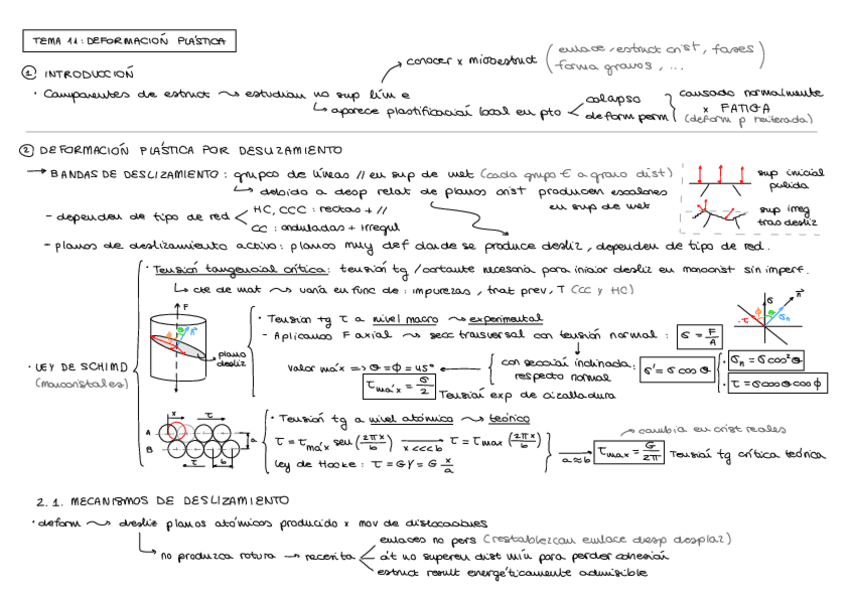 TEMA 11: DEFORMACIÓN PLÁSTICA
① INTRODUCCIÓN
→ conocer x microestruct (enlace, estruct crist, fases
forma granos, ...)
· Componentes de estruct ⤳ estudian no sup lím e
↳ aparece plastificación local en pto < colapso
deform perm
causado normalmente
x FATIGA
(deform p reiterada)
② DEFORMACIÓN PLÁSTICA POR DESLIZAMIENTO
→ BANDAS DE DESLIZAMIENTO: grupos de líneas // en sup de met (cada grupo ∈ a grano dist)
↳ debido a desp relat de planos crist producen escalones
en sup de met
sup inicial
pulida
sup irreg
tras desliz
- dependen de tipo de red < HC, CCC: rectas + //
CC: onduladas + irregul
- planos de deslizamiento activo: planos muy def donde se produce desliz, dependen de tipo de red.
· LEY DE SCHIMD
(monocristales)
· Tensión tangencial crítica: tensión tg / cortante necesaria para iniciar desliz en monocrist sin imperf.
↳ cte de mat ⤳ varía en func de: impurezas, trat prev, T (CC y HC)
F
plano
desliz
· Tensión tg τ a nivel macro ⤳ experimental
- Aplicamos F axial → secc transversal con tensión normal: σ = F/A
con sección inclinada
respecto normal: σ' = σ cos θ
· σn = σ cos² θ
· τ = σ cos θ cos ϕ
valor máx => θ = ϕ = 45°
τmáx = σ/2
Tensión exp de cizalladura
τ
σ
n
σn
x
τ
A
B
a
τ
b
· Tensión tg a nivel atómico ⤳ teórico
τ = τmáx sen (2πx/b) → x<<<b τ = τmax (2πx/b)
ley de Hooke: τ = Gγ = G x/a
a≈b
τmax = G/2π
→ cambia en crist reales
Tensión tg crítica teórica
2.1. MECANISMOS DE DESLIZAMIENTO
· deform ⤳ desliz planos atómicos producido x mov de dislocaciones
↳ no produzca rotura → necesita
enlaces no pers (restablezcan enlace desp desplaz)
át no superen dist mín para perder cohesión
estruct result energéticamente admisible